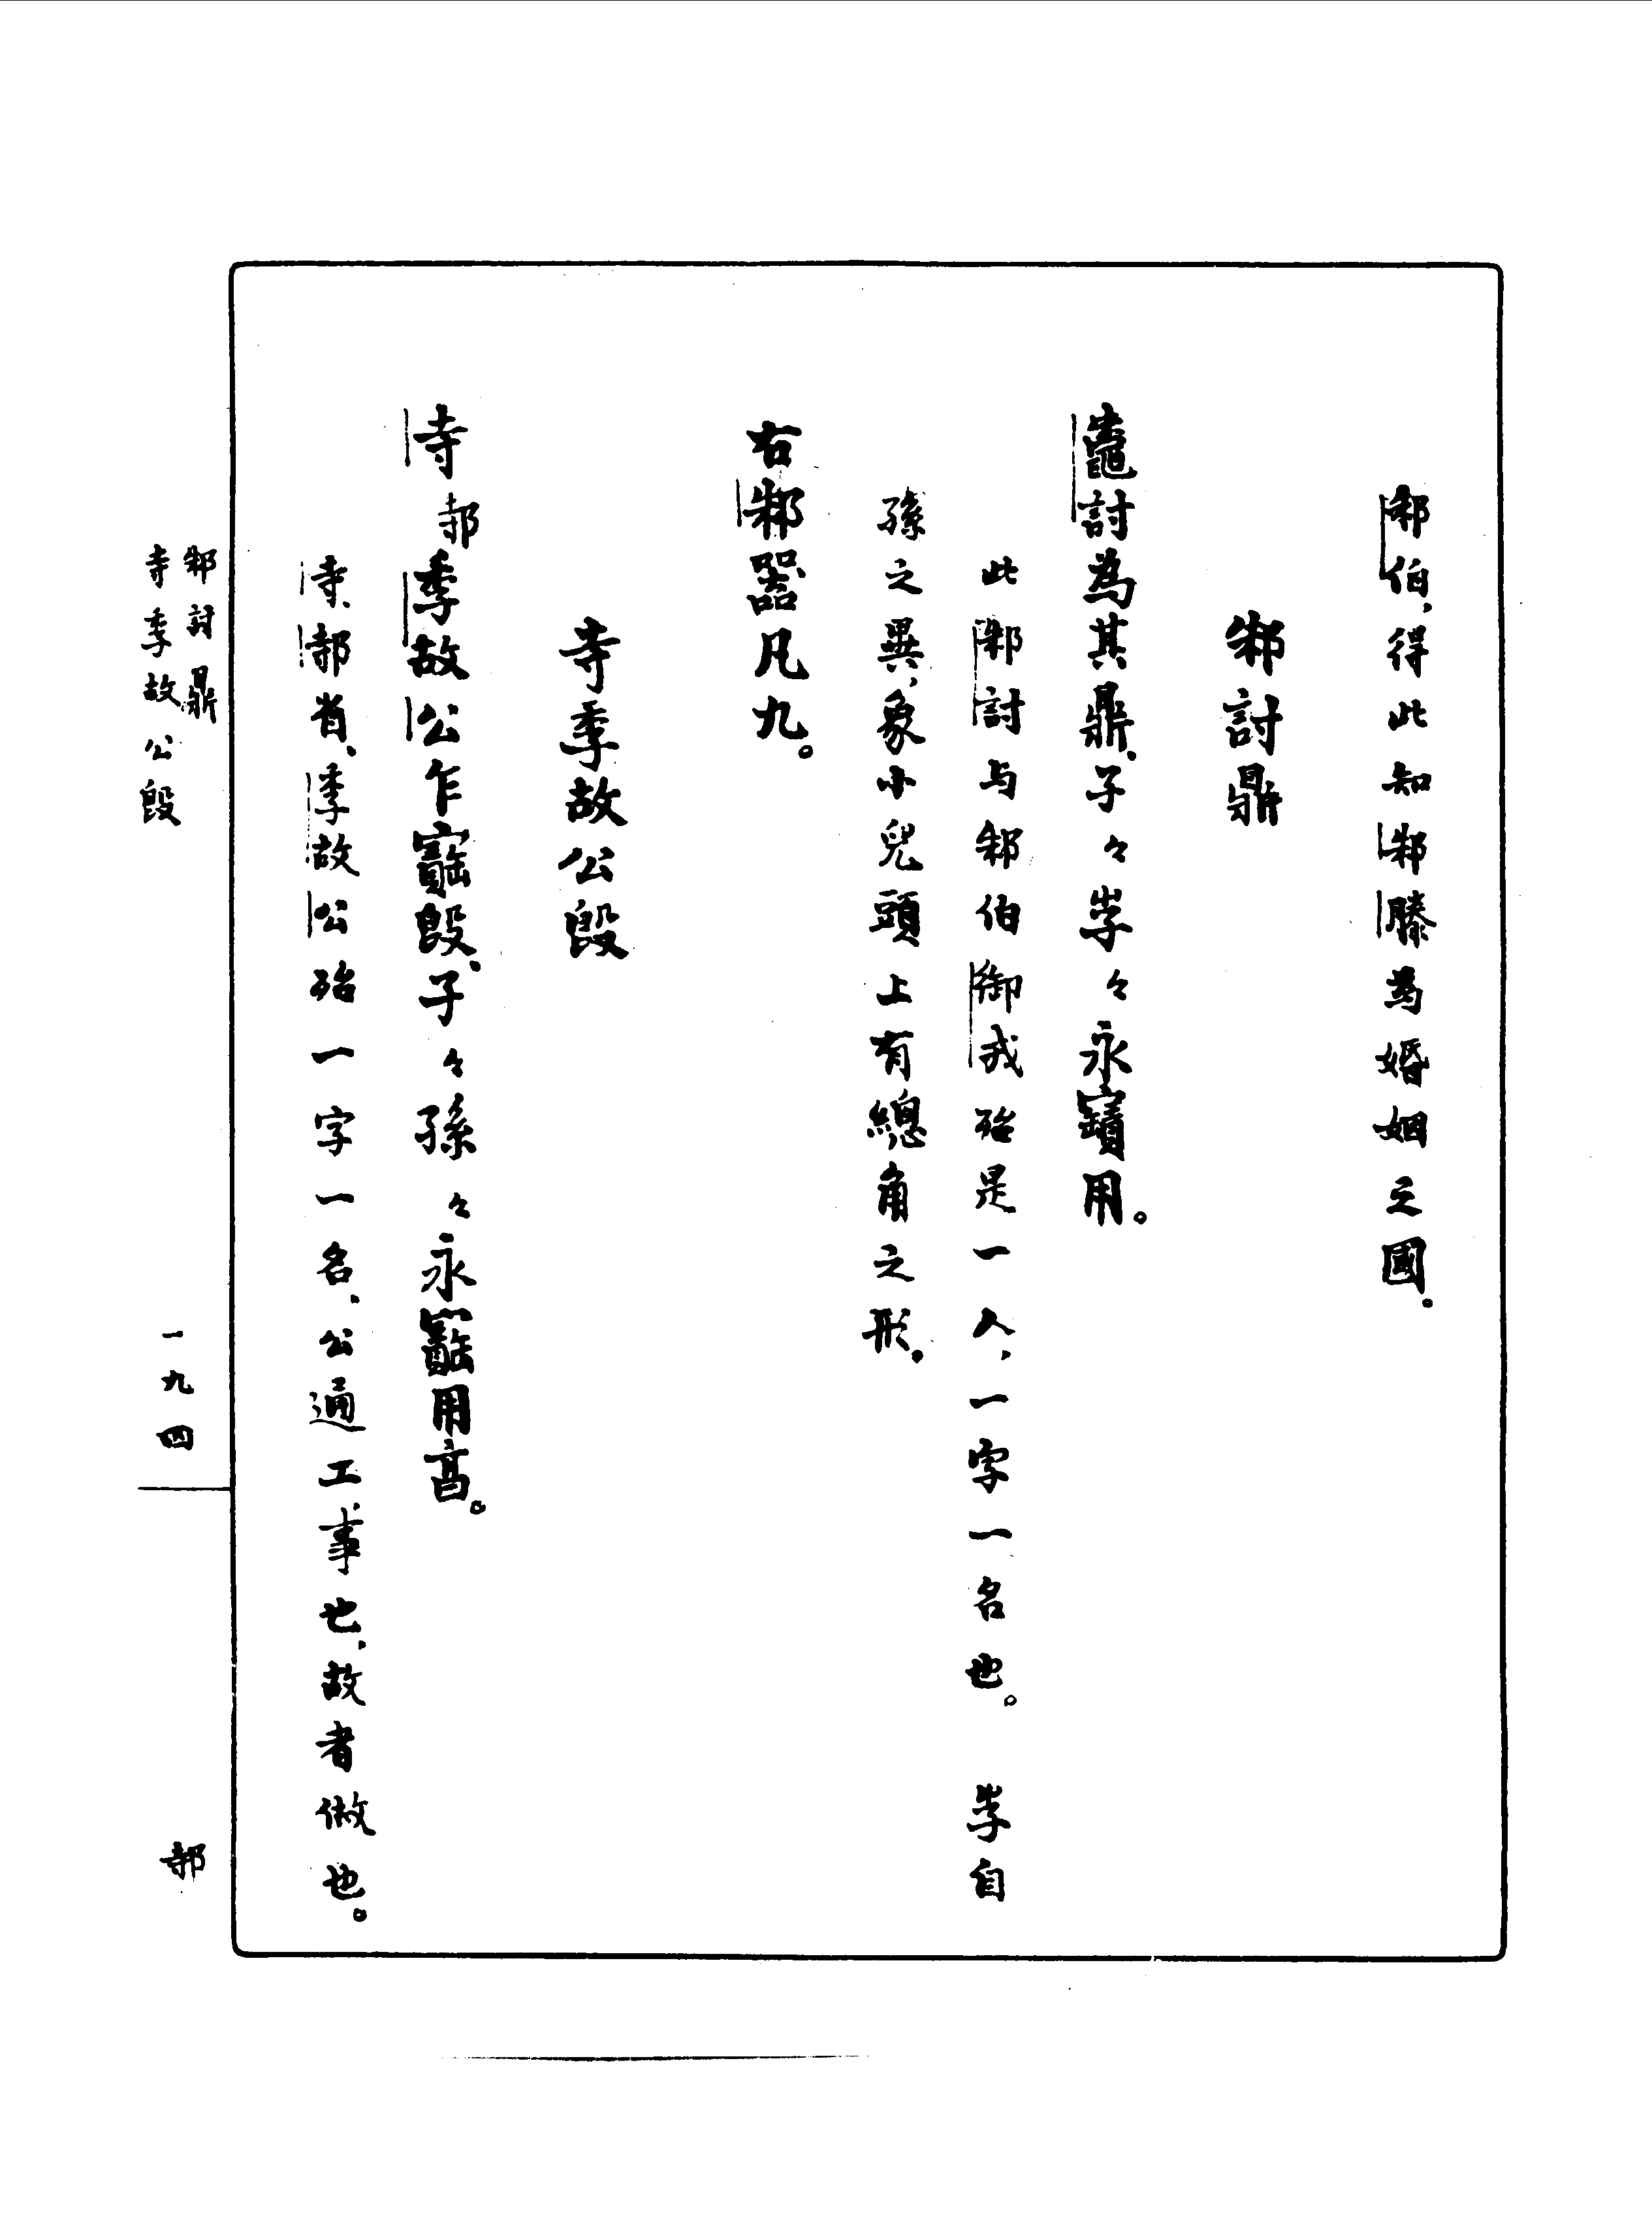 邾伯，得此知邾滕為婚姻之國。
邾討鼎
鼄討為其鼎，子々々永寶用。
此邾討与邾伯御戎殆是一人，一字一名也。　自
孫之異，象小兒頭上有總角之形。
右邾器凡九。
寺季故公𣪘
寺邿季故公乍寶𣪘，子々孫々永寶用亯。
寺、邿省、季故公殆一字一名，公通工事也，故者做也。
邾討鼎
寺季故公𣪘
一九四
邿